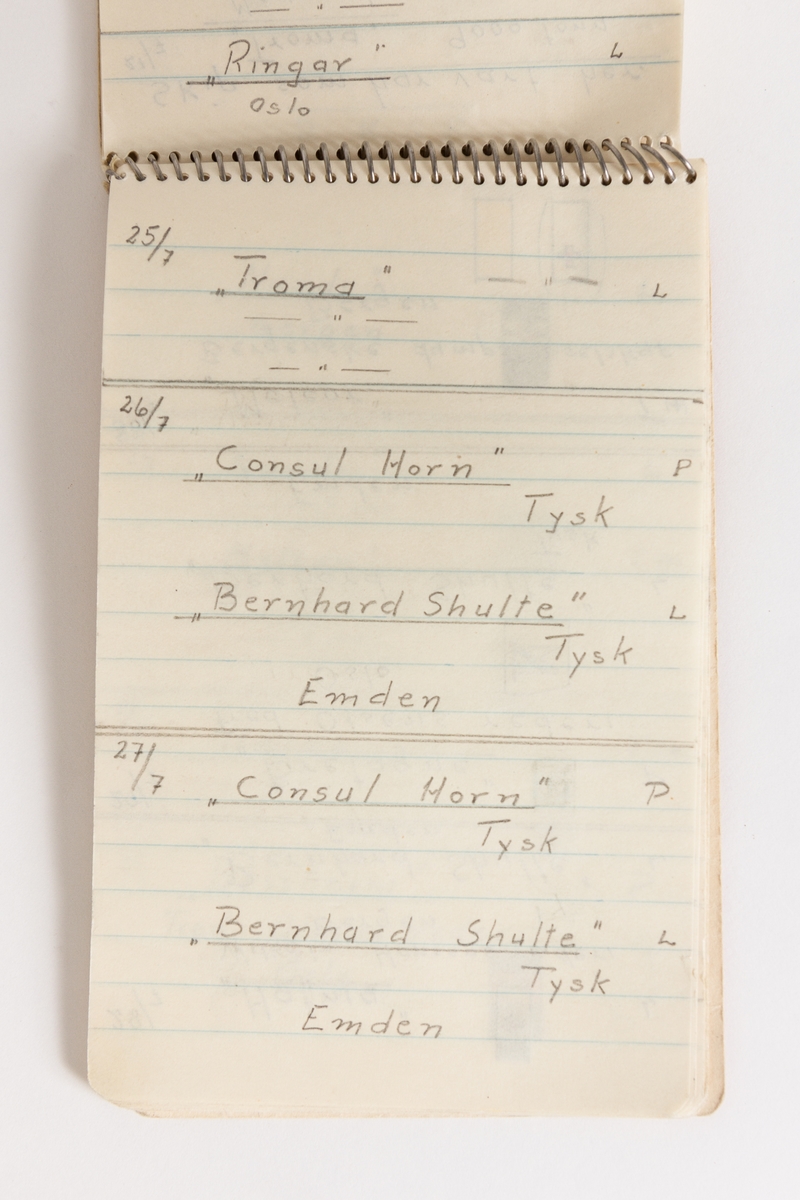 — " —
„Ringar" L
Oslo
25/7
„Troma" L
— " —
— " —
26/7
„Consul Horn" P
Tysk
„Bernhard Shulte" L
Tysk
Emden
27/7
„Consul Horn" P.
Tysk
„Bernhard Shulte" L
Tysk
Emden